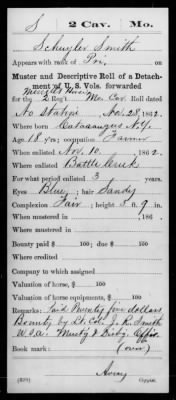 S 2 Cav. Mo.
Schuyler Smith
Appears with rank of Pri.
Muster and Descriptive Roll of a Detach-
ment of U. S. Vols. forwarded
Merrill's Horse
for the 2 Reg't Mo. Cav. Roll dated
No Station Nov. 28, 1862.
Where born Cattaraugus N.Y.
Age 18 y'rs; occupation Farmer
When enlisted Nov. 10, 1862.
Where enlisted Battle Creek
For what period enlisted 3 years.
Eyes Blue; hair Sandy
Complexion Fair; height 5 ft. 9 in.
When mustered in , 186 .
Where mustered in
Bounty paid $ 100; due $ 100
Where credited
Company to which assigned
Valuation of horse, $ 100
Valuation of horse equipments, $ 100
Remarks: Paid Twenty five dollars
Bounty by Lt. Col. J. R. Smith
U.S.A. Must'g & Disb'g Officer
Book mark: (over)
Avery
(339) Copyist.